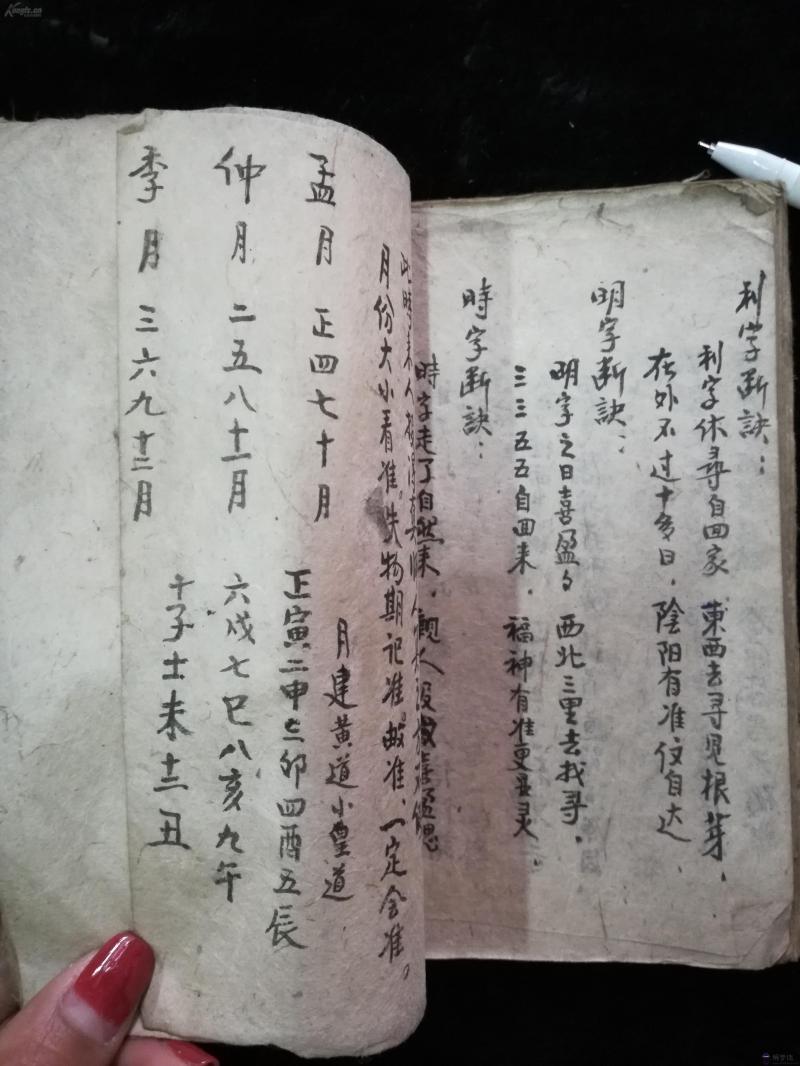 利字断訣：
利字休尋自回家 東西去寻见根芽，
在外不过十多日，陰阳有准仅自达、
明字断訣：
明字之日喜盈々 西北三里去找寻，
三三五五自回来，福神有准更显灵、
時字断訣：
時字走了自然来，
此時来人
月份大小看准。失物期记准。故准、一定会准。
孟月 正四七十月
月建黄道小皇道
仲月 二五八十一月
正寅二申三卯四酉五辰
季月 三六九十二月
六戍七巳八亥九午
十子十一未十二丑
Kongfz.cn